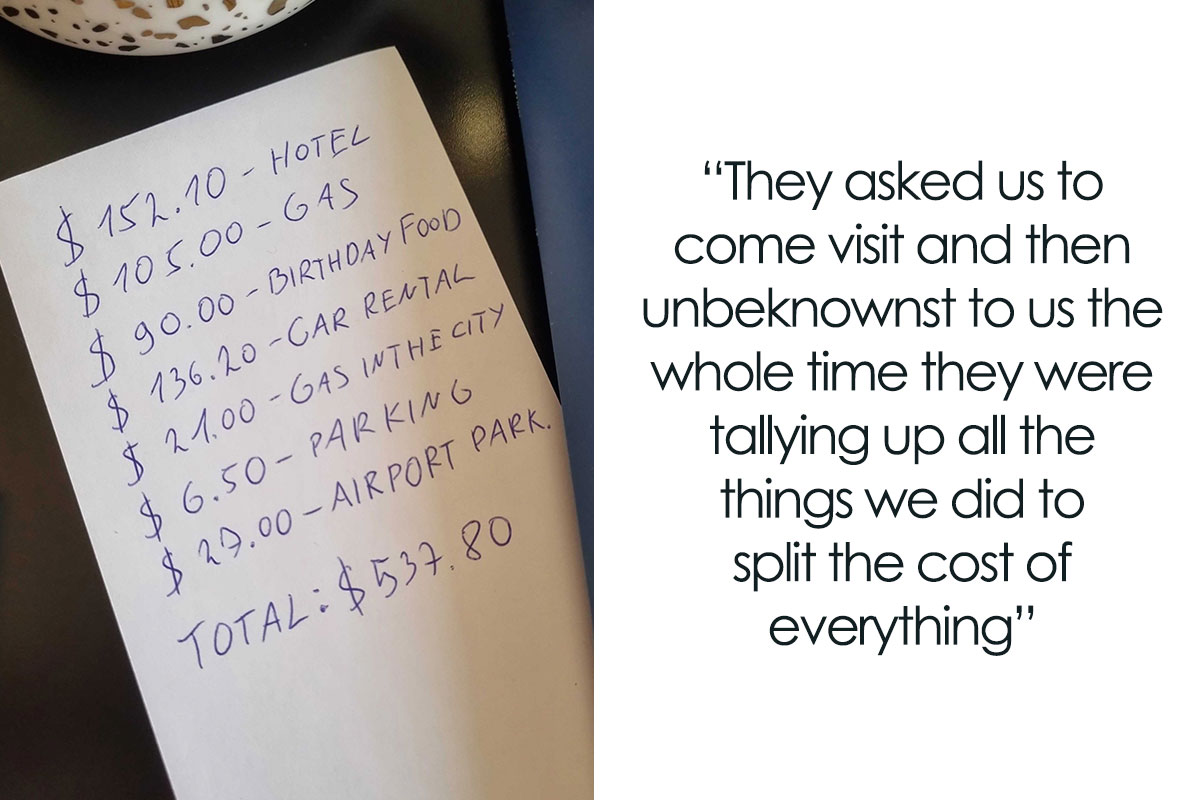 $ 152.10 - HOTEL
$ 105.00 - GAS
$ 90.00 - BIRTHDAY FOOD
$ 136.20 - CAR RENTAL
$ 21.00 - GAS IN THE CITY
$ 6.50 - PARKING
$ 27.00 - AIRPORT PARK.
TOTAL: $537.80
“They asked us to
come visit and then
unbeknownst to us the
whole time they were
tallying up all the
things we did to
split the cost of
everything”